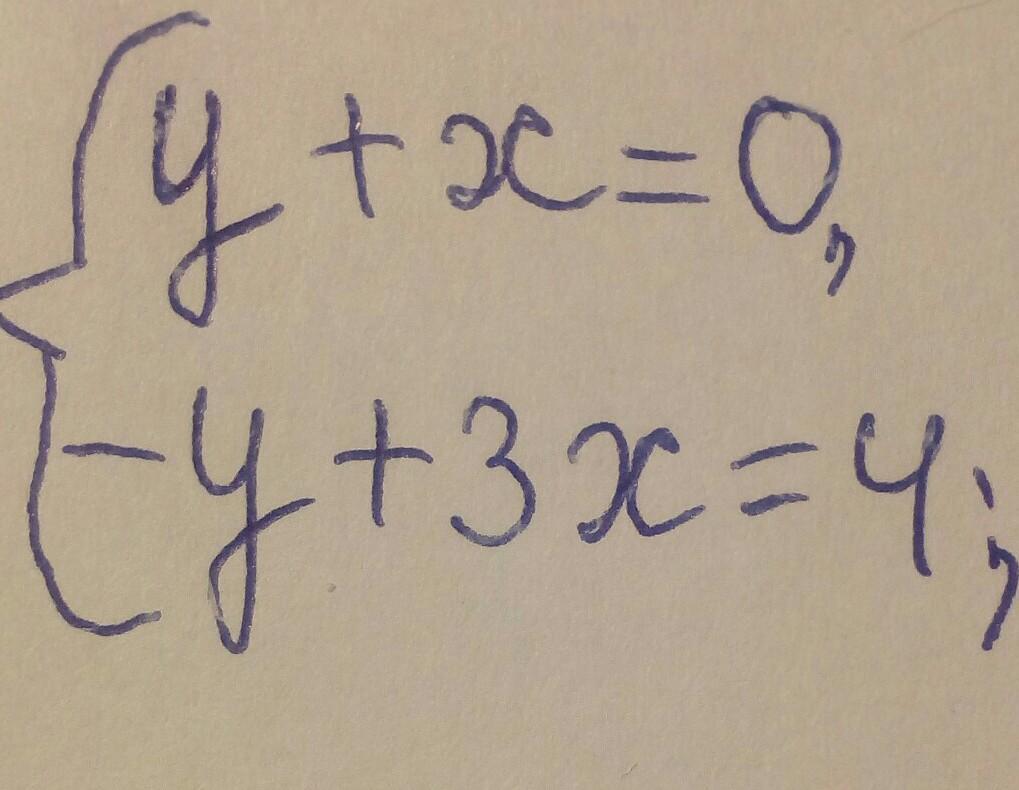 y + x = 0,
-y + 3x = 4;